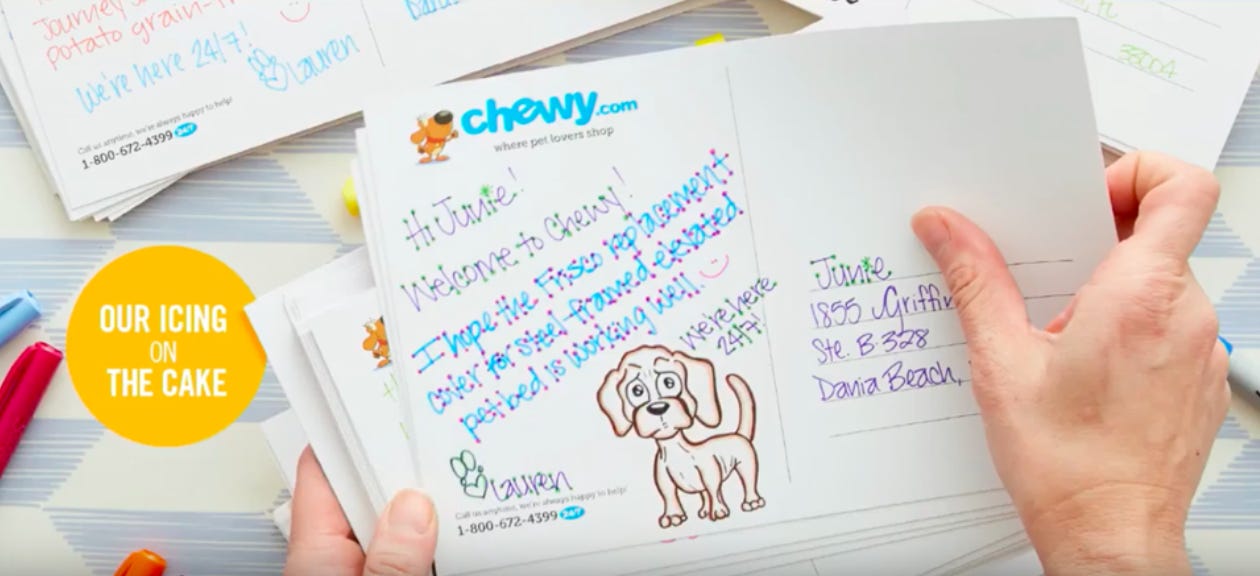 Journey
potato grain-
We're here 24/7!
Lauren
Call us anytime, we're always happy to help!
1-800-672-4399 24/7
FL
33004
chewy.com
where pet lovers shop
Hi Junie!
Welcome to Chewy!
I hope the Frisco replacement
cover for steel-framed elevated
pet bed is working well.
We're here
24/7!
Lauren
Call us anytime, we're always happy to help!
1-800-672-4399 24/7
Junie
1855 Griffin
Ste. B-328
Dania Beach,
OUR ICING
ON
THE CAKE